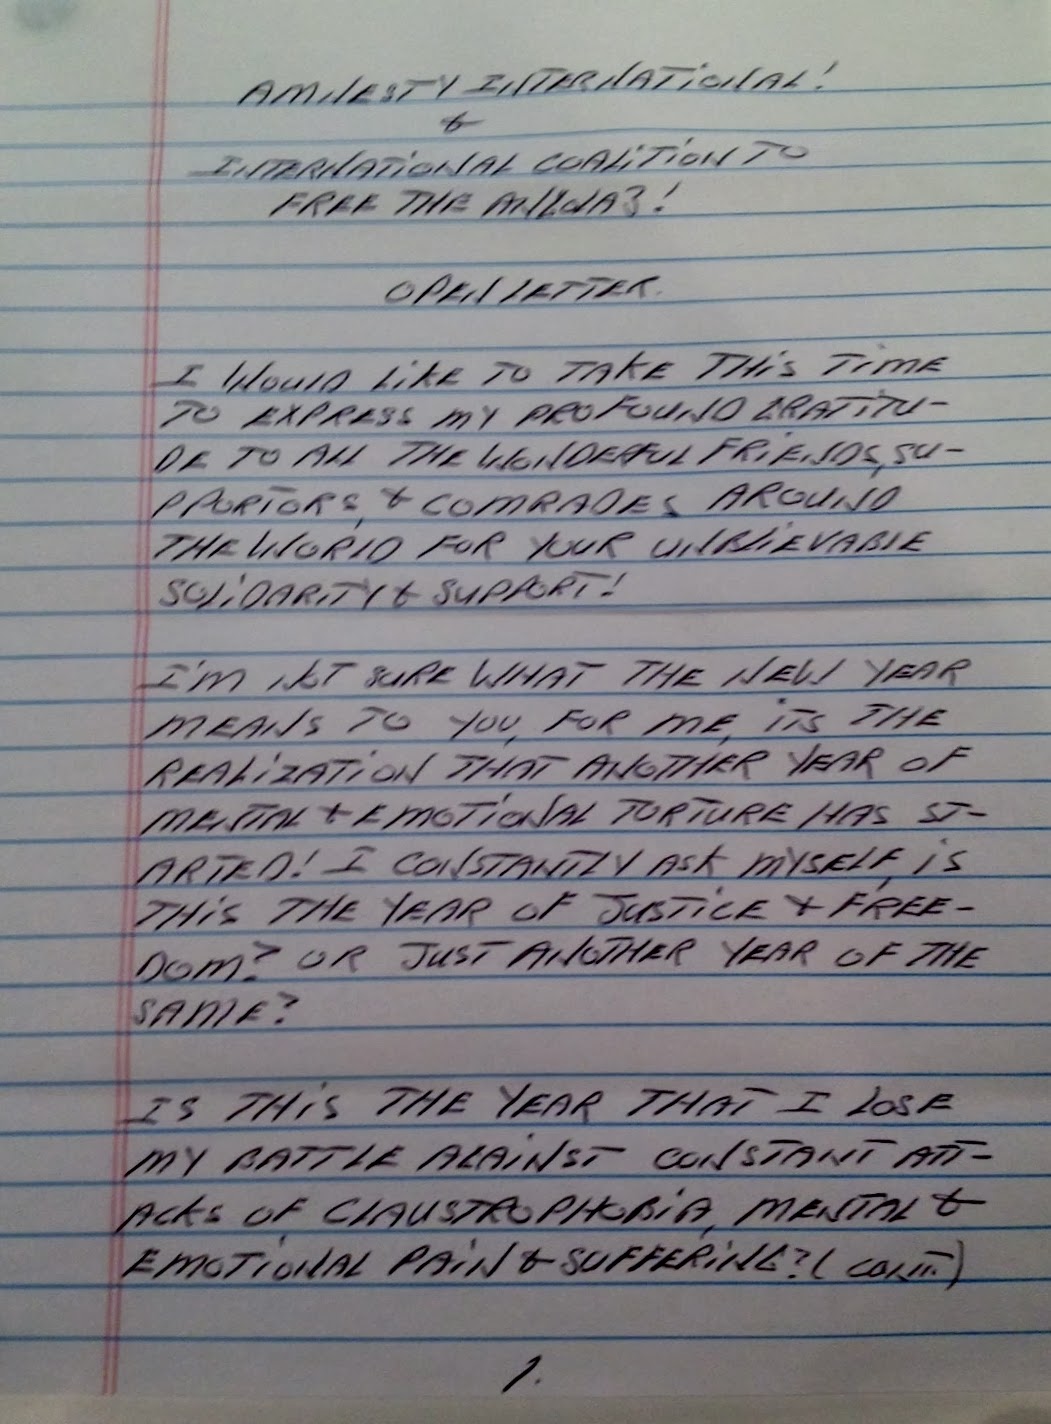 AMNESTY INTERNATIONAL!
&
INTERNATIONAL COALITION TO
FREE THE ANGOLA 3!
OPEN LETTER.
I WOULD LIKE TO TAKE THIS TIME
TO EXPRESS MY PROFOUND GRATITU-
DE TO ALL THE WONDERFUL FRIENDS, SU-
PPORTORS, & COMRADES AROUND
THE WORLD FOR YOUR UNBLIEVABLE
SOLIDARITY & SUPPORT!
I'M NOT SURE WHAT THE NEW YEAR
MEANS TO YOU, FOR ME, ITS THE
REALIZATION THAT ANOTHER YEAR OF
MENTAL & EMOTIONAL TORTURE HAS ST-
ARTED! I CONSTANTLY ASK MYSELF, IS
THIS THE YEAR OF JUSTICE & FREE-
DOM? OR JUST ANOTHER YEAR OF THE
SAME?
IS THIS THE YEAR THAT I LOSE
MY BATTLE AGAINST CONSTANT ATT-
ACKS OF CLAUSTROPHOBIA, MENTAL &
EMOTIONAL PAIN & SUFFERING? (CONT.)
1.